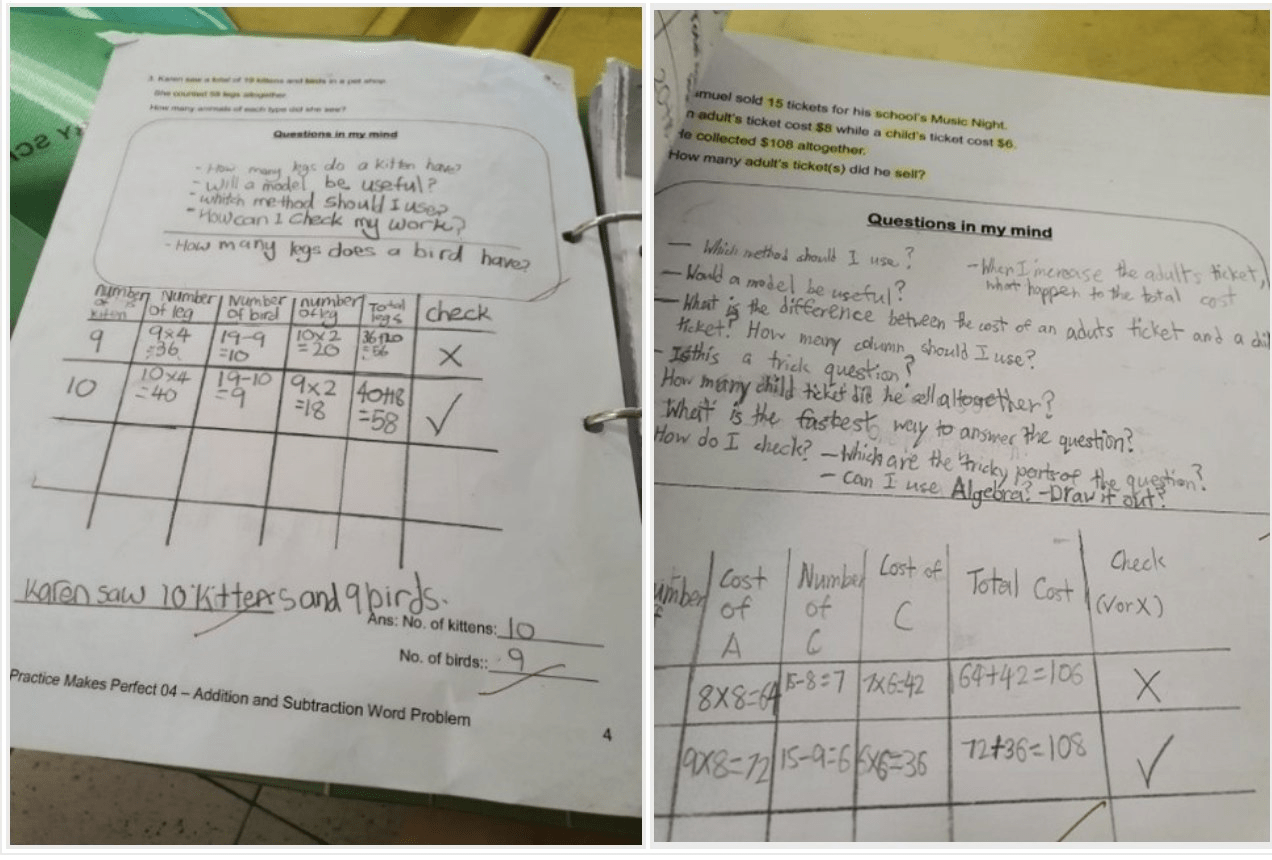 3. Karen saw a total of 19 kittens and birds in a pet shop.
She counted 58 legs altogether.
How many animals of each type did she see?
Questions in my mind
- How many legs do a kitten have?
- Will a model be useful?
- whitch method should I use?
- How can I check my work?
- How many legs does a bird have?
number of kitten | Number of leg | Number of bird | number of leg | Total legs | check
9 | 9x4 =36 | 19-9 =10 | 10x2 =20 | 36+20 =56 | X
10 | 10x4 =40 | 19-10 =9 | 9x2 =18 | 40+18 =58 | ✓
Karen saw 10 kittens and 9 birds.
Ans: No. of kittens: 10
No. of birds:: 9
Practice Makes Perfect 04 – Addition and Subtraction Word Problem
4
SCI
muel sold 15 tickets for his school's Music Night.
n adult's ticket cost $8 while a child's ticket cost $6.
He collected $108 altogether.
How many adult's ticket(s) did he sell?
Questions in my mind
— Which method should I use?
- When I increase the adult's ticket,
what happen to the total cost
— Would a model be useful?
— What is the difference between the cost of an aduts ticket and a chil
ticket? How many column should I use?
- Is this a trick question?
How many child ticket did he sell altogether?
What is the fastest way to answer the question?
How do I check? - Which are the tricky parts of the question?
- Can I use Algebra? - Draw it out?
umber | Cost of A | Number of C | Cost of C | Total Cost | Check (✓or X)
8x8=64 | 15-8=7 | 7x6=42 | 64+42=106 | X
9x8=72 | 15-9=6 | 6x6=36 | 72+36=108 | ✓